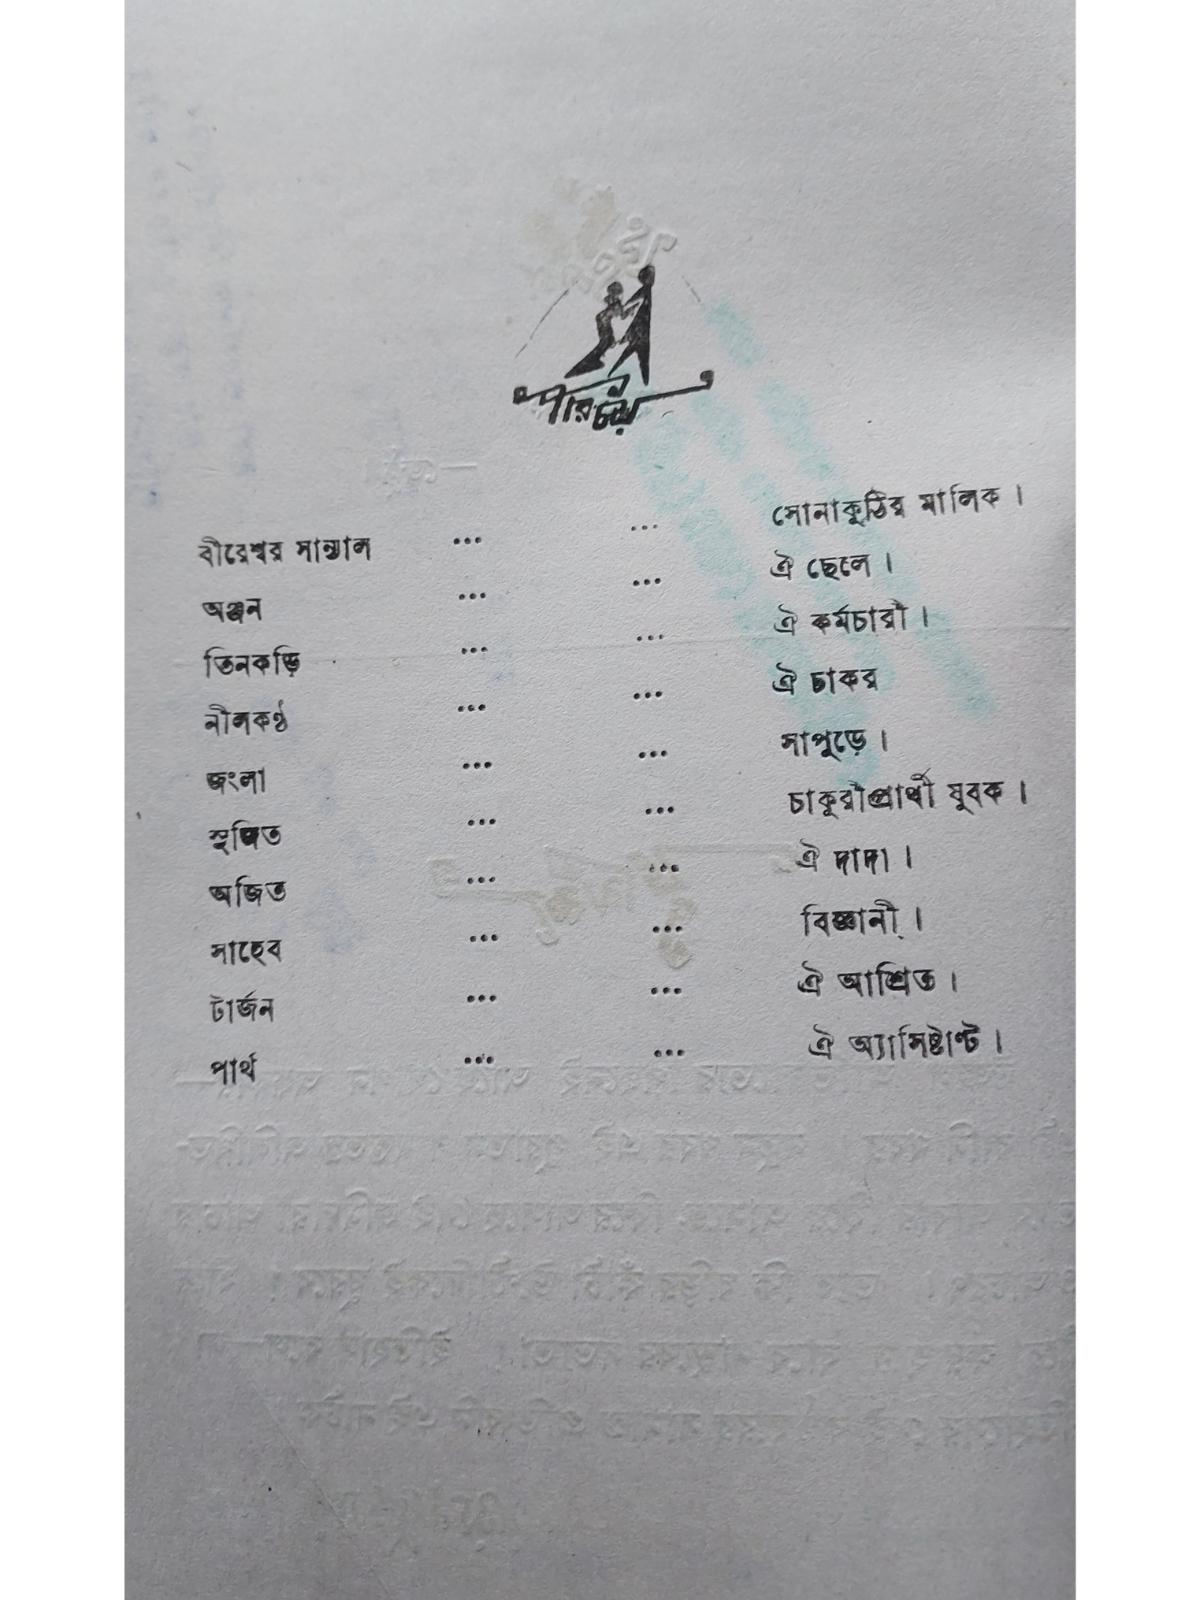 পরিচয়
বীরেশ্বর সান্যাল ... ... সোনাকুঠির মালিক ।
অঞ্জন ... ... ঐ ছেলে ।
তিনকড়ি ... ... ঐ কর্মচারী ।
নীলকণ্ঠ ... ... ঐ চাকর
জংলা ... ... সাপুড়ে ।
সুজিত ... ... চাকুরীপ্রার্থী যুবক ।
অজিত ... ... ঐ দাদা ।
সাহেব ... ... বিজ্ঞানী ।
টার্জন ... ... ঐ আশ্রিত ।
পার্থ ... ... ঐ অ্যাসিষ্টাণ্ট ।